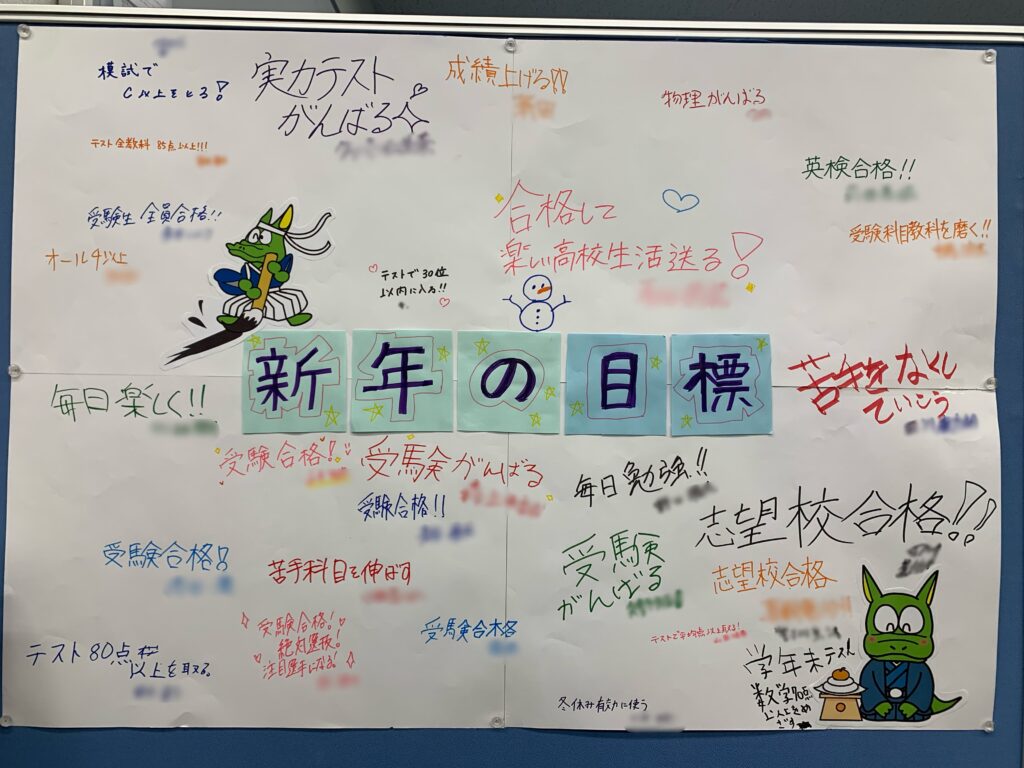 模試で
C以上をとる!
実力テスト
がんばる
成績上げる!!
物理がんばる
テスト全教科 85点以上!!!
英検合格!!
受験生 全員合格!!
オール4以上
テストで30位
以内に入る!!
合格して
楽しい高校生活送る!
受験科目教科を磨く!!
新年の目標
毎日楽しく!!
苦手をなくし
ていこう
受験合格!
受験がんばる
受験合格!!
毎日勉強!!
志望校合格!!
受験合格!
苦手科目を伸ばす
受験
がんばる
志望校合格
テスト80点
以上を取る。
受験合格!
絶対選抜!
注目選手になる。
受験合格
テストで平均点以上取る!
学年末テスト
数学70点
以上とるめ
ざす
冬休み有効に使う